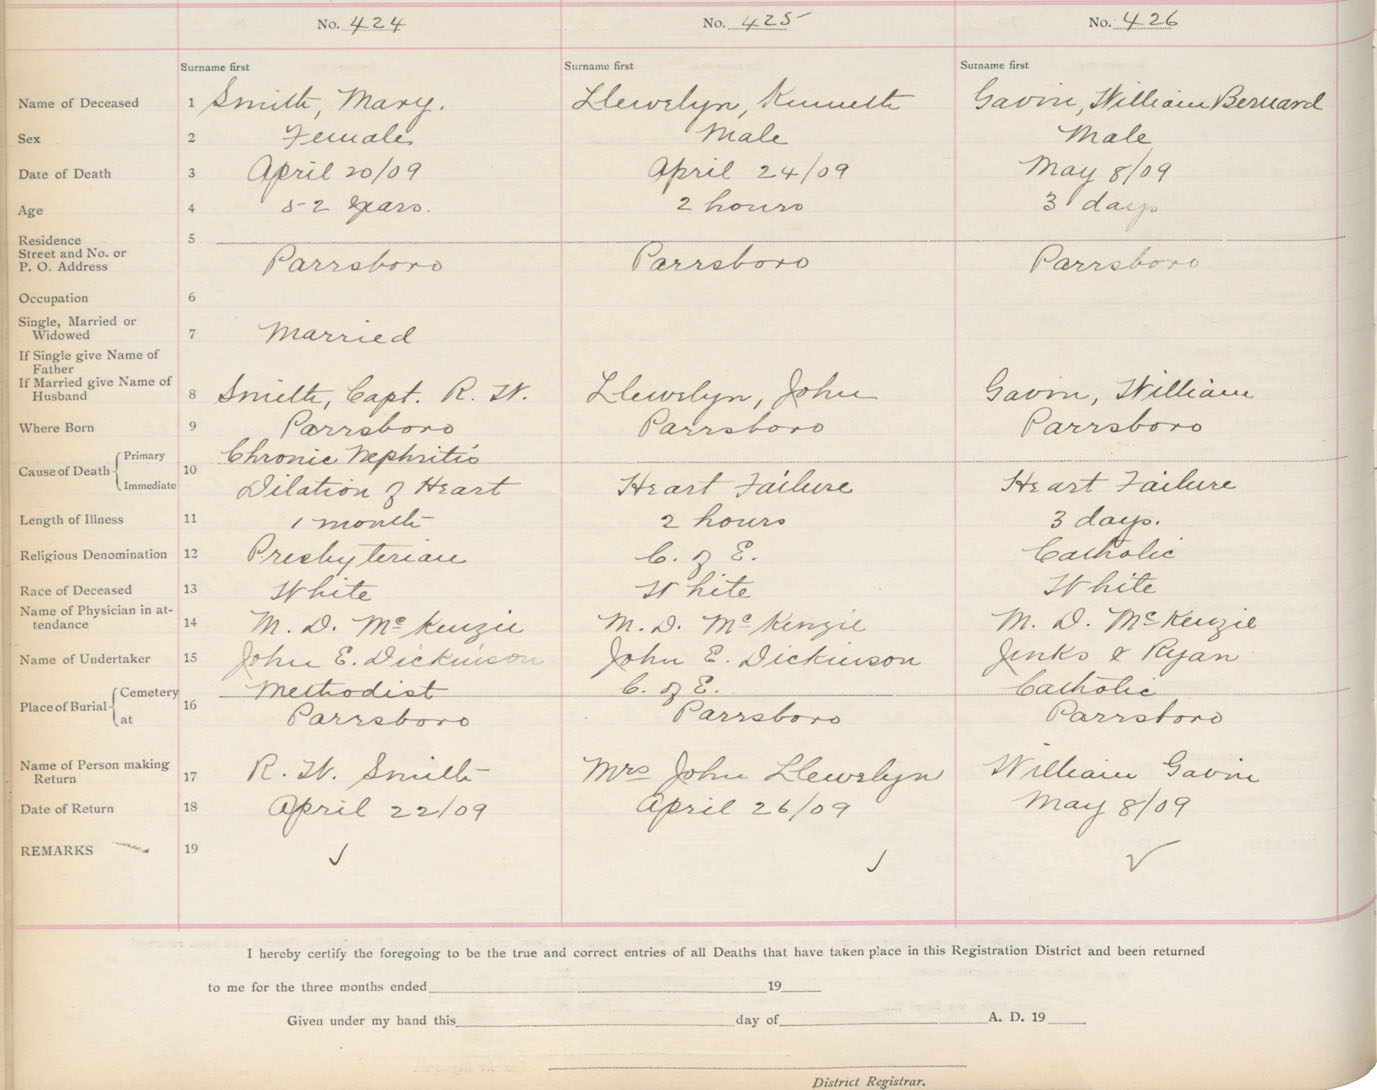 No. 424 No. 425 No. 426
Surname first Surname first Surname first
Name of Deceased 1 Smith, Mary. Llewelyn, Kenneth Gavin, William Bernard
Sex 2 Female Male Male
Date of Death 3 April 20/09 April 24/09 May 8/09
Age 4 52 years. 2 hours 3 days
Residence 5
Street and No. or
P. O. Address Parrsboro Parrsboro Parrsboro
Occupation 6
Single, Married or
Widowed 7 Married
If Single give Name of
Father
If Married give Name of
Husband 8 Smith, Capt. R. W. Llewelyn, John Gavin, William
Where Born 9 Parrsboro Parrsboro Parrsboro
Primary Chronic Nephritis
Cause of Death 10
Immediate Dilation of Heart Heart Failure Heart Failure
Length of Illness 11 1 month 2 hours 3 days.
Religious Denomination 12 Presbyterian C. of E. Catholic
Race of Deceased 13 White White White
Name of Physician in at-
tendance 14 M. D. McKenzie M. D. McKenzie M. D. McKenzie
Name of Undertaker 15 John E. Dickinson John E. Dickinson Jenks & Ryan
Cemetery Methodist C. of E. Catholic
Place of Burial 16
at Parrsboro Parrsboro Parrsboro
Name of Person making
Return 17 R. W. Smith Mrs John Llewelyn William Gavin
Date of Return 18 April 22/09 April 26/09 May 8/09
REMARKS 19 ✓ ✓ ✓
I hereby certify the foregoing to be the true and correct entries of all Deaths that have taken place in this Registration District and been returned
to me for the three months ended 19
Given under my hand this day of A. D. 19
District Registrar.